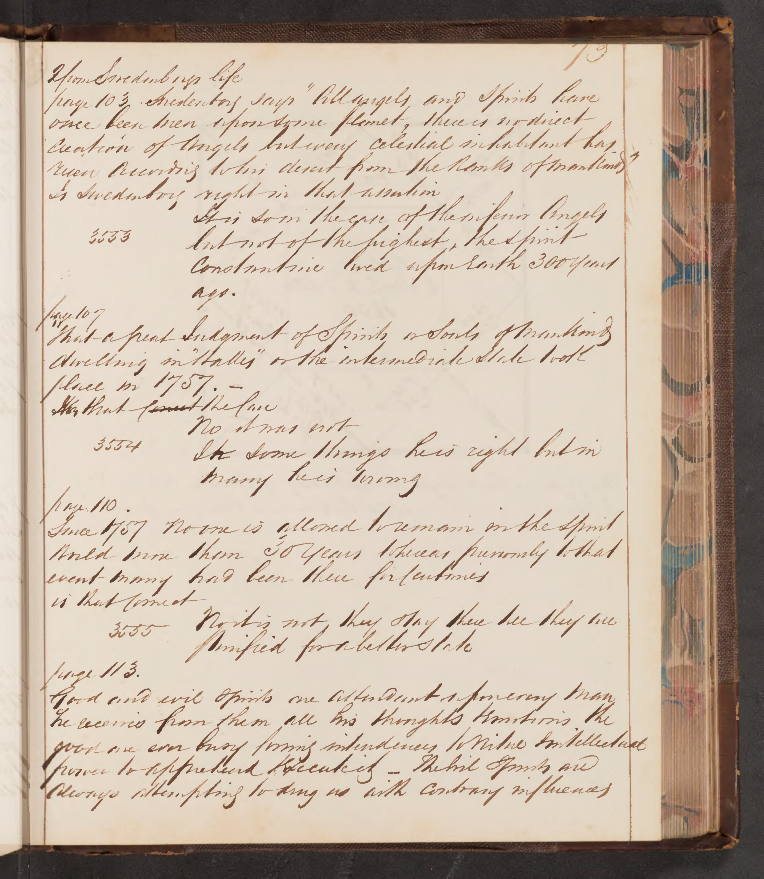 73
Upon Swedenborgs life
page 103 Swedenborg says "All angels and Spirits have
once been men upon some planet, there is no direct
Creation of Angels but every celestial inhabitant has
risen according to his desert from the Ranks of Mankind"
Is Swedenborg right in that assertion
It is so in the case of the inferior Angels
3553
but not of the highest, the spirit
Constantine lived upon Earth 300 years
ago.
page 107
That a great Judgment of Spirits or Souls of Mankind
dwelling in "Hades" or the intermediate state took
place in 1757. —
Was that the case
No it was not
3554
In some things he is right but in
many he is wrong
page 110.
Since 1757 No one is allowed to remain in the spirit
World more than 30 years whereas previously to that
event many had been there for Centuries
is that correct
No it is not, they stay there till they are
3555
purified for a better state
page 113.
Good and evil Spirits are attendant upon every man
he receives from them all his thoughts Emotions the
good are ever busy giving to Virtue Intellectual
power to apprehend & execute it — The Evil Spirits are
always attempting to drug us with contrary influences